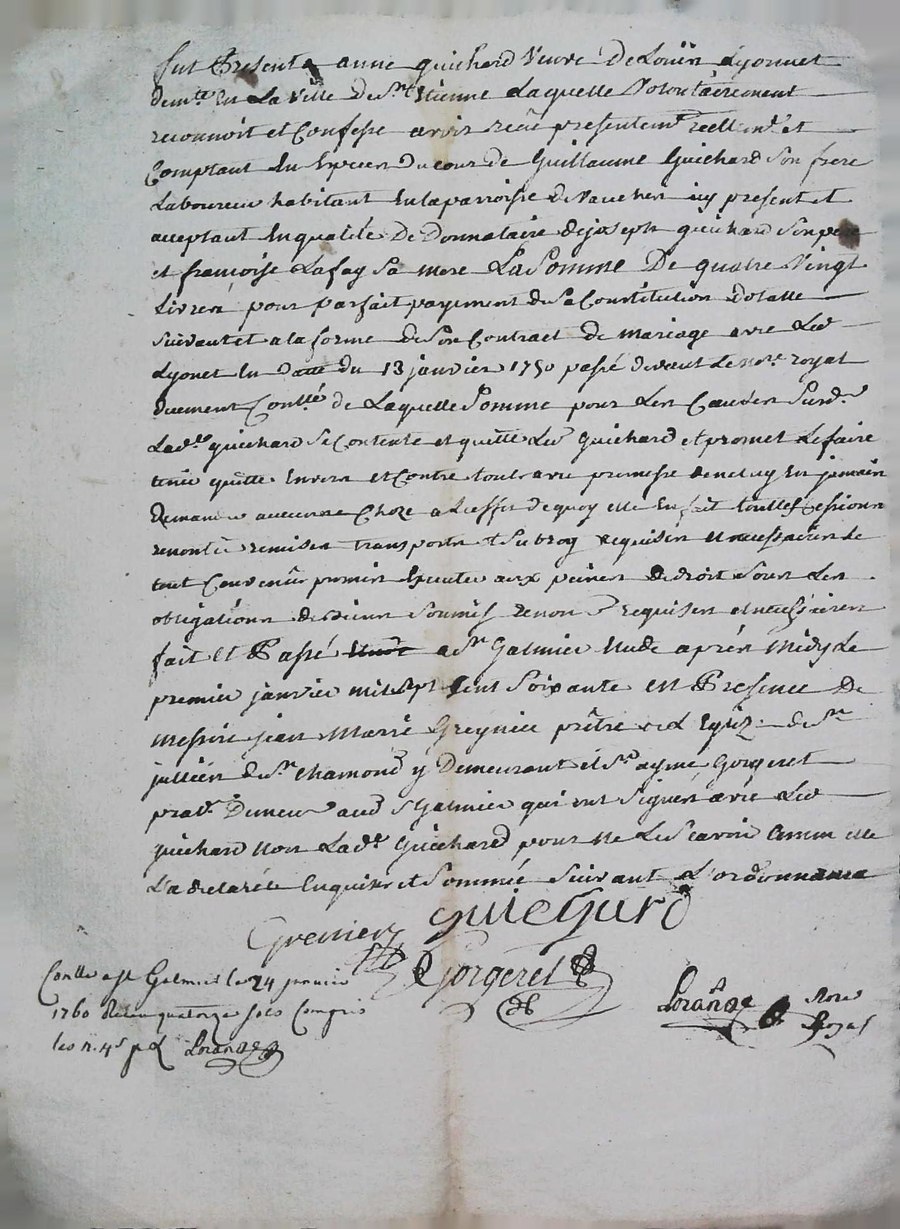 fut Presente anne guichard veuve De Loüis Lyonnet
demte En La Ville de St Etienne Laquelle Volontairement
reconnoit et Confesse avoir reçu presentemt réellemt et
Comptant En Especes Du cour de Guillaume Guichard Son frere
Laboureur habitant En la parroisse De icy present et
acceptant En qualité De Donnataire de joseph guichard Son pere
et francoise Lafay Sa mere La Somme De quatre Vingt
Livres pour parfait payement de Sa Constitution dotalle
Suivant et a la forme de Son Contract de mariage avec Led
Lyonet En Datte du 13 janvier 1750 passé devant Le nore royal
duement Contllé de Laquelle Somme pour Les Causes Susd.
Lade guichard Se Contente et quitte Led Guichard et promet Le faire
tenir quitte Envers et Contre touts avec promesse de ne luy En jamais
Demander aucune Choze a L'effet de quoy elle En fait touttes Cessions
remises transports et Subrog requises et necessaires Le
tout Convenu promis Executer aux peines de droit Sous Les
obligations de biens Soumis. renon. requises et necessaires
fait et Passé a St Galmier Etude après Midy Le
premier janvier mil Sept Cent Soixante en Presence De
Messire jean Marie Greynier prêtre de St
jullien de St Chamond y Demeurant et Sr aymé Gorgeret
prat. Demeur aud St Galmier qui ont Signés avec Led
guichard non Lade Guichard pour ne Le Scavoir Comme elle
L'a declarée Enquise et Sommée Suivant L'ordonnance
Grenier guichard
Gorgeret
Contllé a St Galmier le 24 janvier
1760 Reçu quatorze sols Compris
les n. 4s p d Lorange
Lorange Nore
Royal